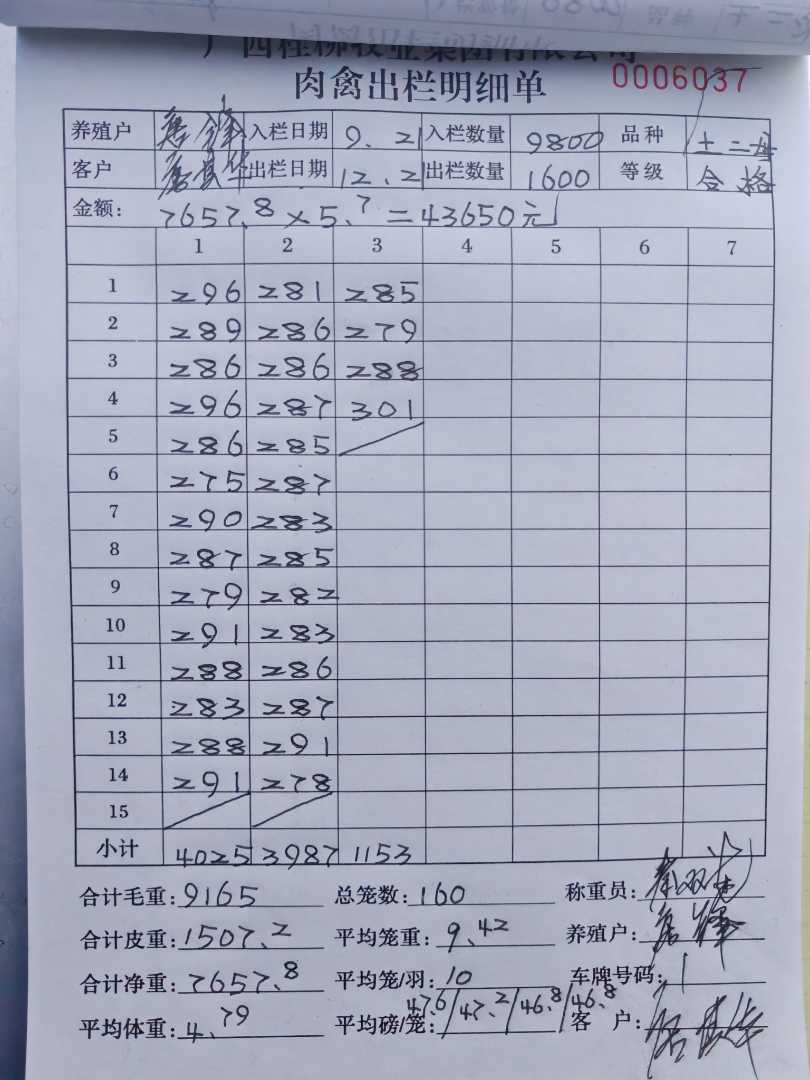 广西桂柳牧业集团有限公司
肉禽出栏明细单 0006037
养殖户 入栏日期 9.21 入栏数量 9800 品种 土二号
客户 出栏日期 12.21 出栏数量 1600 等级 合格
金额: 7657.8×5.7=43650元
1 2 3 4 5 6 7
1 296 281 285
2 289 286 279
3 286 286 288
4 296 287 301
5 286 285
6 275 287
7 290 283
8 287 285
9 279 282
10 291 283
11 288 286
12 283 287
13 288 291
14 291 278
15
小计 4025 3987 1153
合计毛重: 9165 总笼数: 160 称重员:
合计皮重: 1507.2 平均笼重: 9.42 养殖户:
合计净重: 7657.8 平均笼/羽: 10 车牌号码:
平均体重: 4.79 平均磅/笼: 47.6/47.2/46.8/46.8 客 户: